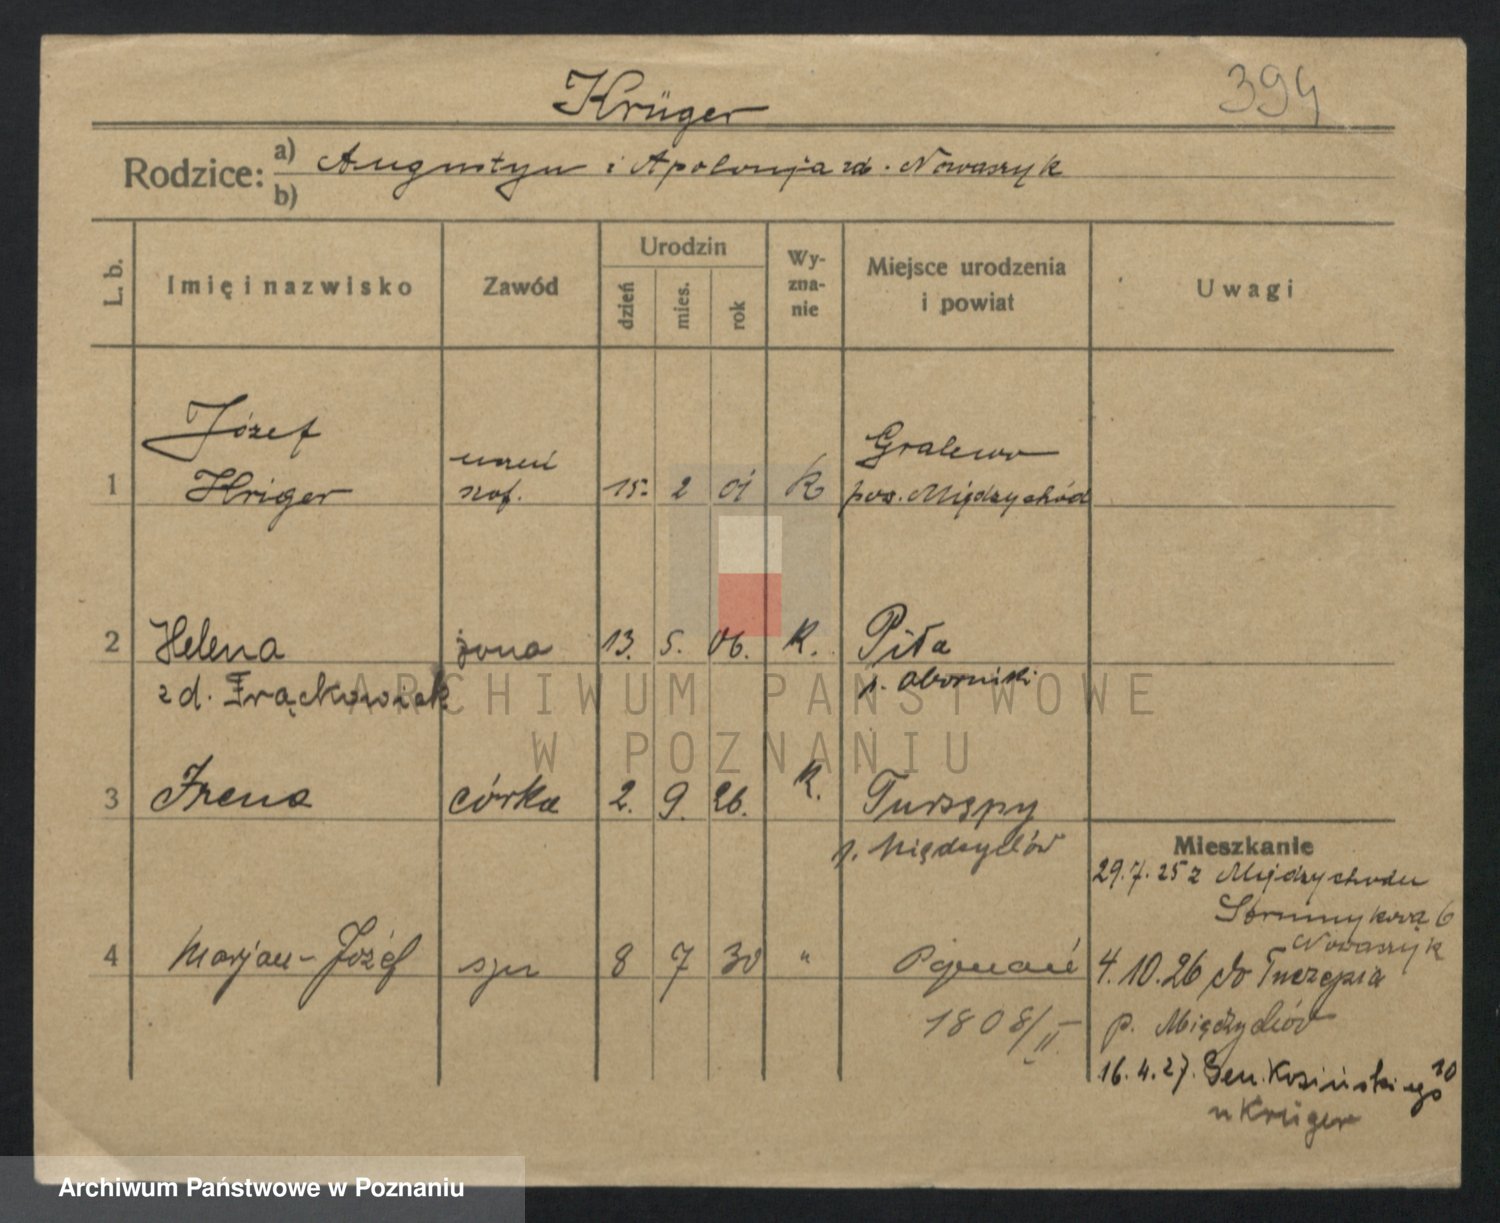 394
Krüger
Rodzice: a) Augustyn i Apolonja zd. Nowaszyk
b)
L. b. Imię i nazwisko Zawód Urodzin dzień mies. rok Wyznanie Miejsce urodzenia i powiat Uwagi
Józef
1 Kriger uczeń szof. 15. 2 01 K Gralewo
pow. Międzychód
2 Helena żona 13. 5. 06. K. Piła
zd. Frąckowiak p. Oborniki
3 Irena córka 2. 9. 26. K. Turzępy
p. Międzychód
Mieszkanie
29.7.25 z Międzychodu
Strumykowa 6
Nowaszyk
4 Marjan-Józef syn 8 7 30 " Poznań
1808/II
4.10.26 do Turzępia
p. Międzychód
16.4.27. Gen. Kosińskiego 10
u Krüger
ARCHIWUM PAŃSTWOWE
W POZNANIU
Archiwum Państwowe w Poznaniu